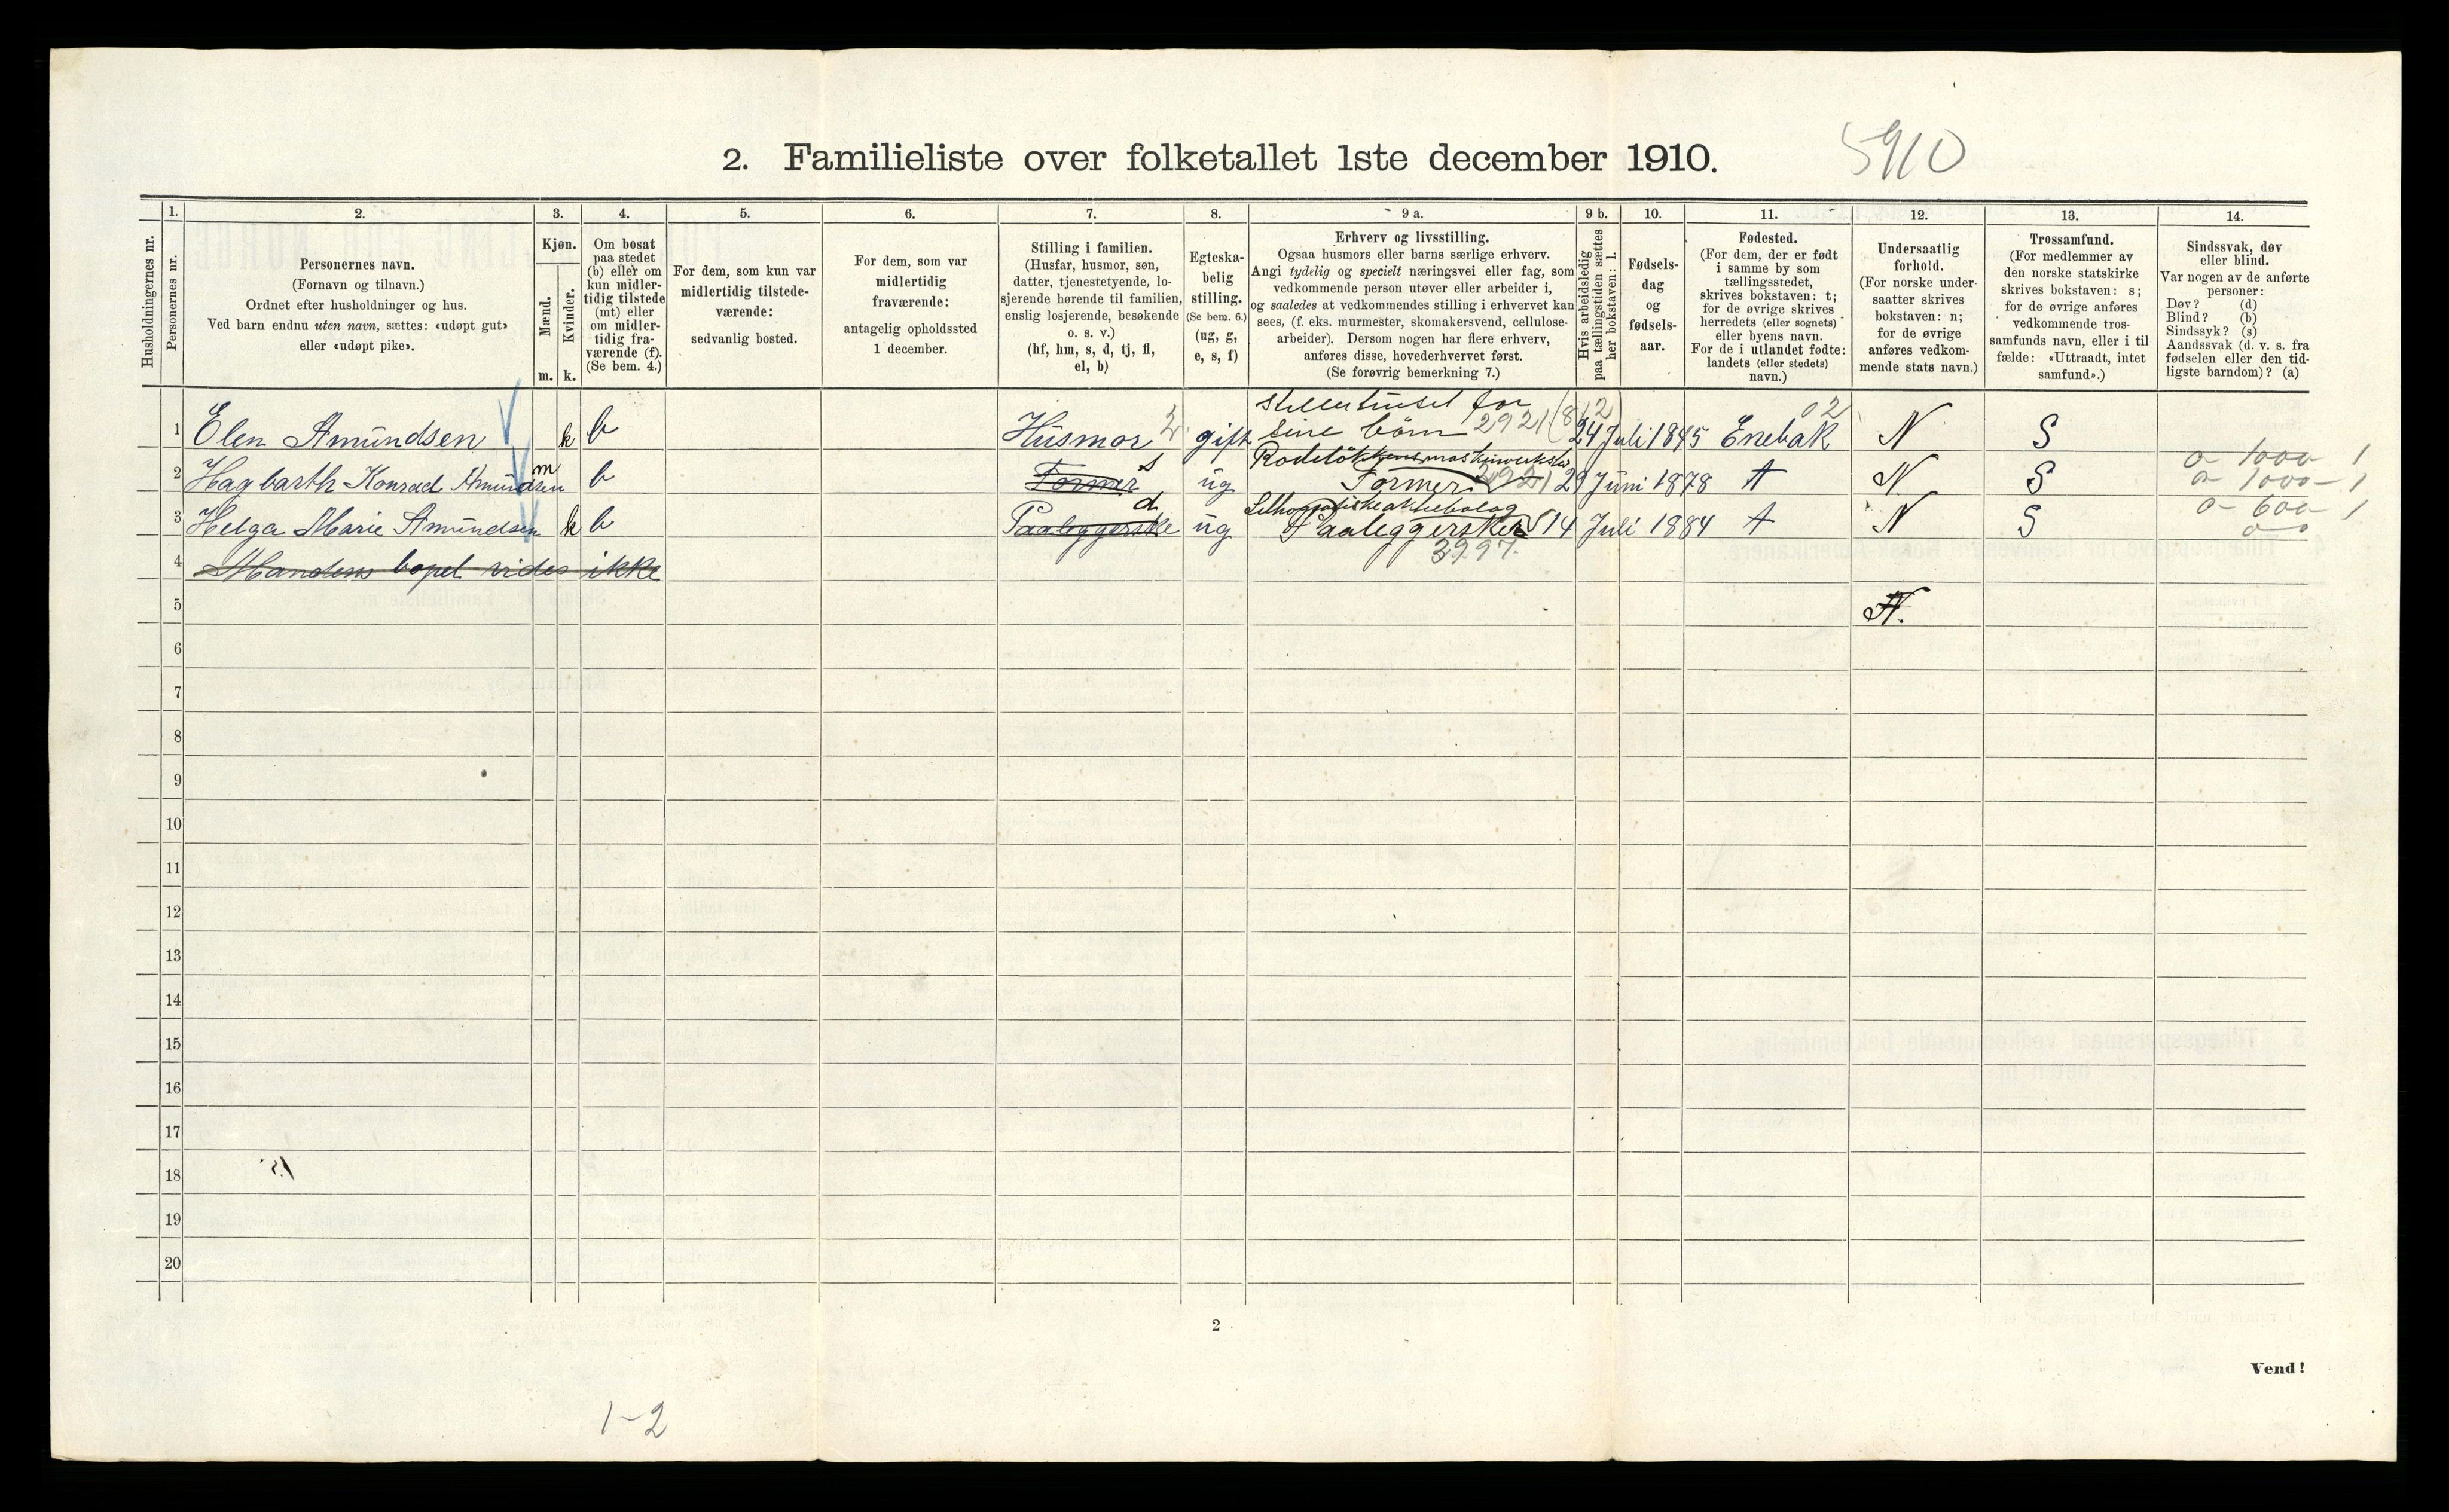 2. Familieliste over folketallet 1ste december 1910.
5910
Husholdningernes nr.
1.
Personernes nr.
2.
Personernes navn.
(Fornavn og tilnavn.)
Ordnet efter husholdninger og hus.
Ved barn endnu uten navn, sættes: «udøpt gut»
eller «udøpt pike».
3.
Kjøn.
Mænd.
Kvinder.
m. k.
4.
Om bosat
paa stedet
(b) eller om
kun midler-
tidig tilstede
(mt) eller
om midler-
tidig fra-
værende (f).
(Se bem. 4.)
5.
For dem, som kun var
midlertidig tilstede-
værende:
sedvanlig bosted.
6.
For dem, som var
midlertidig
fraværende:
antagelig opholdssted
1 december.
7.
Stilling i familien.
(Husfar, husmor, søn,
datter, tjenestetyende, lo-
sjerende hørende til familien,
enslig losjerende, besøkende
o. s. v.)
(hf, hm, s, d, tj, fl,
el, b)
8.
Egteska-
belig
stilling.
(Se bem. 6.)
(ug, g,
e, s, f)
9 a.
Erhverv og livsstilling.
Ogsaa husmors eller barns særlige erhverv.
Angi tydelig og specielt næringsvei eller fag, som
vedkommende person utøver eller arbeider i,
og saaledes at vedkommendes stilling i erhvervet kan
sees, (f. eks. murmester, skomakersvend, cellulose-
arbeider). Dersom nogen har flere erhverv,
anføres disse, hovederhvervet først.
(Se forøvrig bemerkning 7.)
9 b.
Hvis arbeidsledig
paa tællingstiden sættes
her bokstaven: l.
10.
Fødsels-
dag
og
fødsels-
aar.
11.
Fødested.
(For dem, der er født
i samme by som
tællingsstedet,
skrives bokstaven: t;
for de øvrige skrives
herredets (eller sognets)
eller byens navn.
For de i utlandet fødte:
landets (eller stedets)
navn.)
12.
Undersaatlig
forhold.
(For norske under-
saatter skrives
bokstaven: n;
for de øvrige
anføres vedkom-
mende stats navn.)
13.
Trossamfund.
(For medlemmer av
den norske statskirke
skrives bokstaven: s;
for de øvrige anføres
vedkommende tros-
samfunds navn, eller i til
fælde: «Uttraadt, intet
samfund».)
14.
Sindssvak, døv
eller blind.
Var nogen av de anførte
personer:
Døv? (d)
Blind? (b)
Sindssyk? (s)
Aandssvak (d. v. s. fra
fødselen eller den tid-
ligste barndom)? (a)
1 Elen Amundsen k b Husmor gift steller huset for sine børn 2921 24 Juli 1845 Enebak 02 N S
2 Hagbarth Konrad Amundsen m b Former s ug Rodeløkkens maskinverksted Former 2921 29 Juni 1878 t N S 0 - 1000 - 1
0 - 1000 - 1
3 Helga Marie Amundsen k b Paaleggerske d ug Paaleggerske 14 Juli 1884 t N S 0 - 600 - 1
3997.
4 Mandens bopel vides ikke
5 N.
6
7
8
9
10
11
12
13
14
15
16
17
18
19
20
2
Vend!
1-2